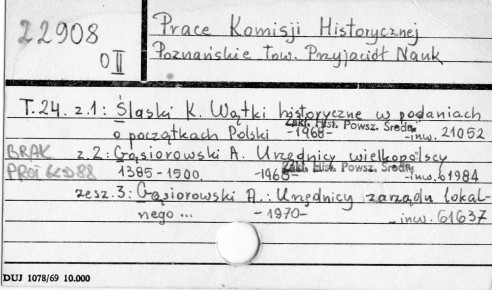 22908
O II
Prace Komisji Historycznej
Poznańskie tow. Przyjaciół Nauk
T. 24. z.1: Śląski K. Wątki historyczne w podaniach
o początkach Polski -1968- Zakł. Hist. Powsz. Średn. -inw. 21052
BRAK z.2: Gąsiorowski A. Urzędnicy wielkopolscy
1385-1500. -1968- Zakł. Hist. Powsz. Średn. -inw. 61984
zesz. 3: Gąsiorowski A.: Urzędnicy zarządu lokal-
nego ... -1970- -inw. 61637
DUJ 1078/69 10.000